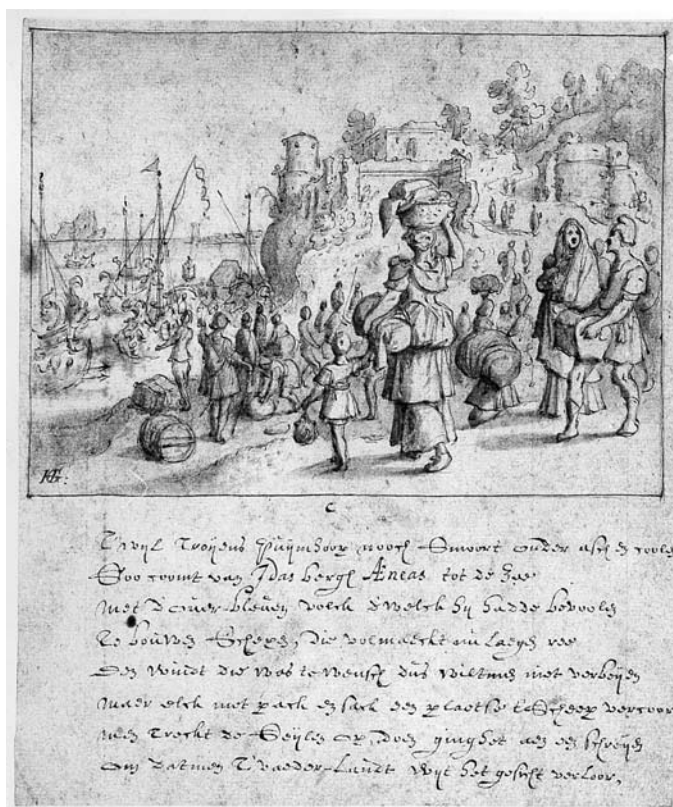 HG:
C
T'wijl Troijens Puijnhoop nooch Smoort onder asch en coolen
Soo coomt van Idas bergh Æneas tot de Zee
Met d'over-bleven volck d'welck hij hadde bevoolen
Te bouwen Schepen, die volmaeckt nu laegen ree
Den windt die was te wensch dus wiltmen niet verbeijen
Maer elck met pack en sack een plaetse t'Scheep vercoor
Men Treckt de Seijlen op, doen ginghet aen een schreijen
Om datmen T'vaeder-Landt wijt het gesicht verloor,